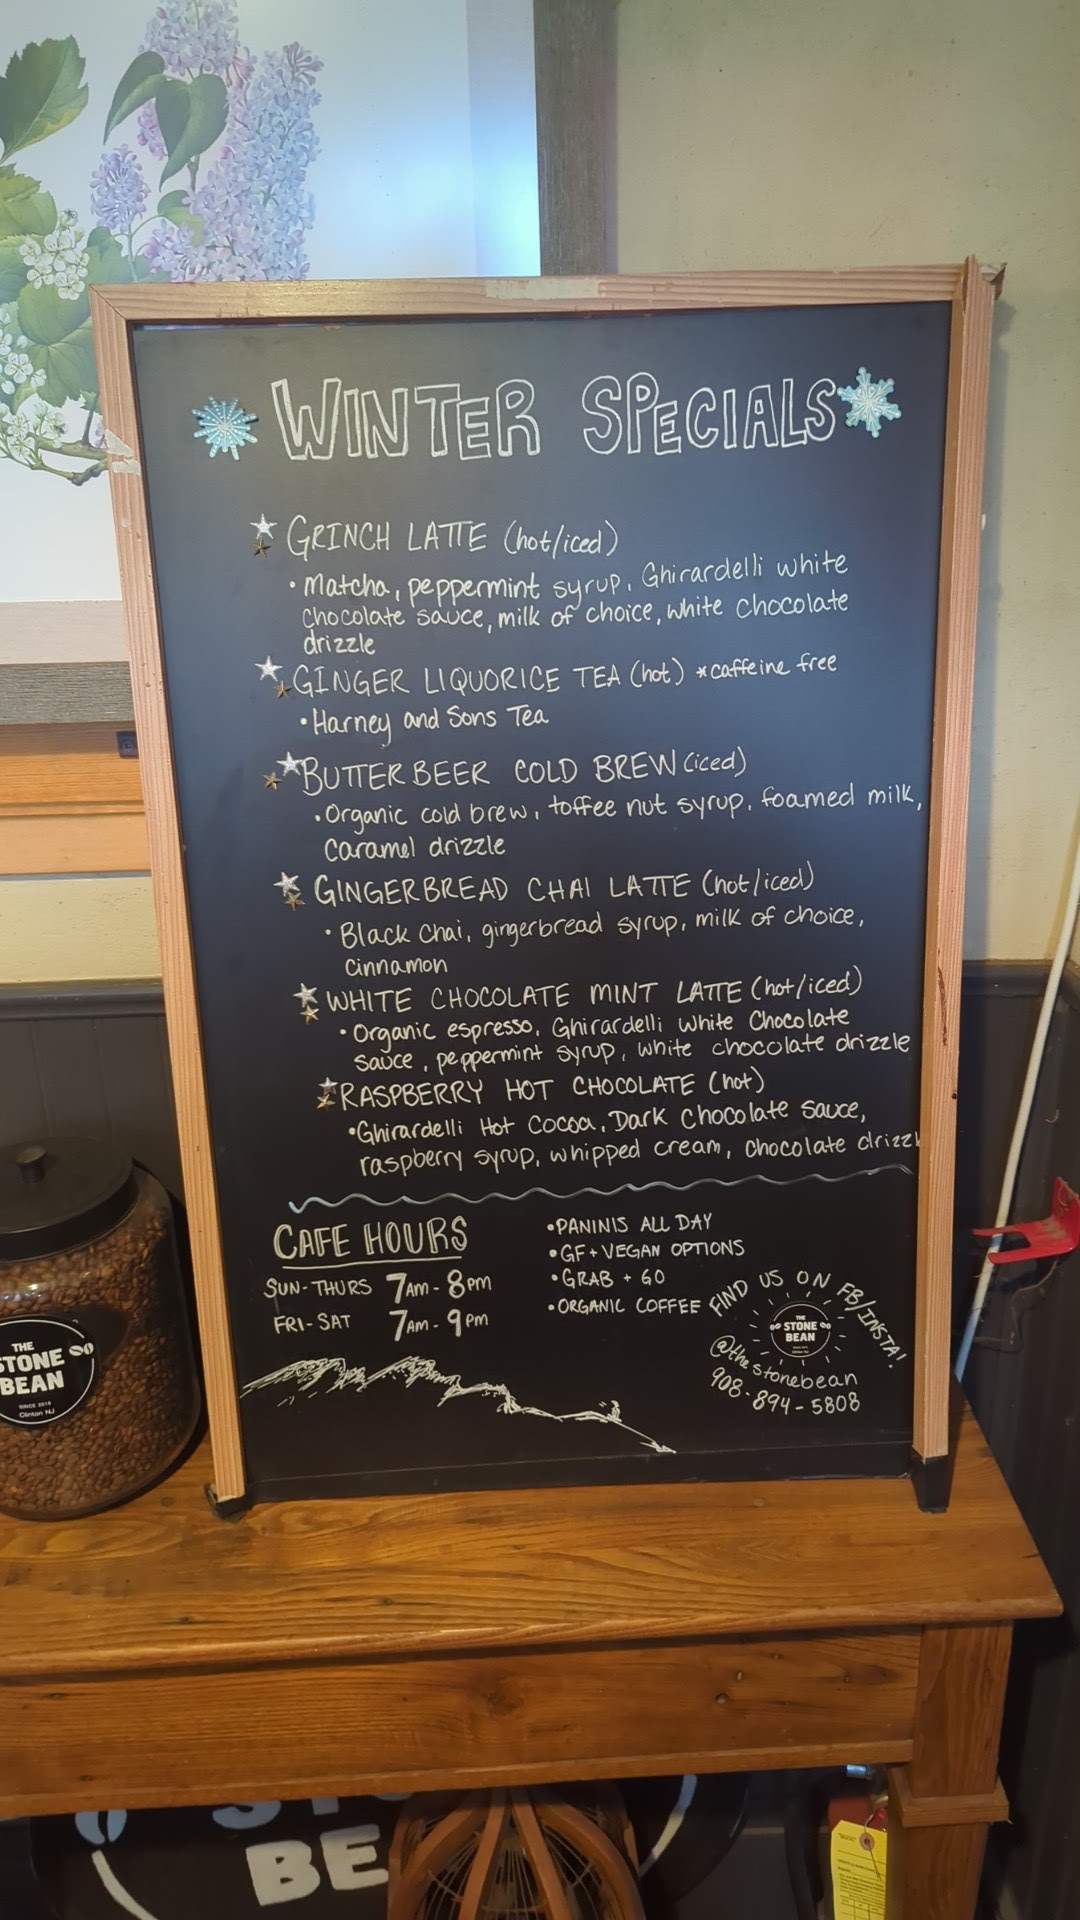 WINTER SPECIALS
GRINCH LATTE (hot/iced)
• Matcha, peppermint syrup, Ghirardelli white
chocolate sauce, milk of choice, white chocolate
drizzle
GINGER LIQUORICE TEA (hot) *caffeine free
• Harney and Sons Tea
BUTTERBEER COLD BREW (iced)
• Organic cold brew, toffee nut syrup, foamed milk,
caramel drizzle
GINGERBREAD CHAI LATTE (hot/iced)
• Black Chai, gingerbread syrup, milk of choice,
cinnamon
WHITE CHOCOLATE MINT LATTE (hot/iced)
• Organic espresso, Ghirardelli White Chocolate
sauce, peppermint syrup, white chocolate drizzle
RASPBERRY HOT CHOCOLATE (hot)
• Ghirardelli Hot Cocoa, Dark Chocolate sauce,
raspberry syrup, whipped cream, chocolate drizzl
CAFE HOURS
SUN-THURS 7AM-8PM
FRI-SAT 7AM-9PM
• PANINIS ALL DAY
• GF + VEGAN OPTIONS
• GRAB + GO
• ORGANIC COFFEE
FIND US ON FB/INSTA!
THE
STONE
BEAN
@thestonebean
908-894-5808
THE
STONE
BEAN
SINCE 2018
Clinton NJ
BE